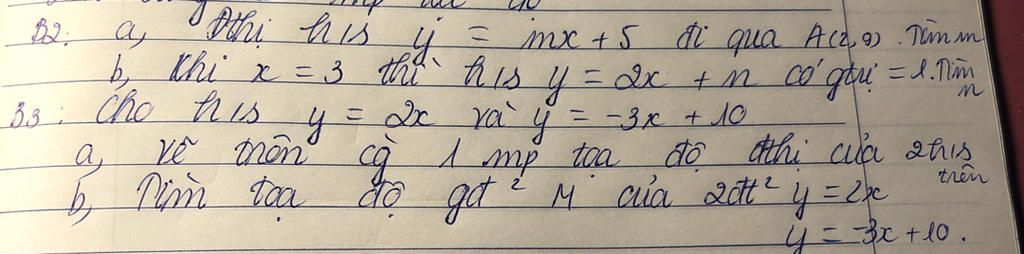 B2: a, Đthị h/s y = mx + 5 đi qua A(2,9). Tìm m
b, Khi x = 3 thì h/s y = 2x + n có gtrị = 1. Tìm n
B3: Cho h/s y = 2x và y = -3x + 10
a, vẽ trên cg 1 mp tọa độ đthị của 2 h/s trên
b, Tìm tọa độ gđ² M của 2đt² y = 2x
y = -3x + 10.